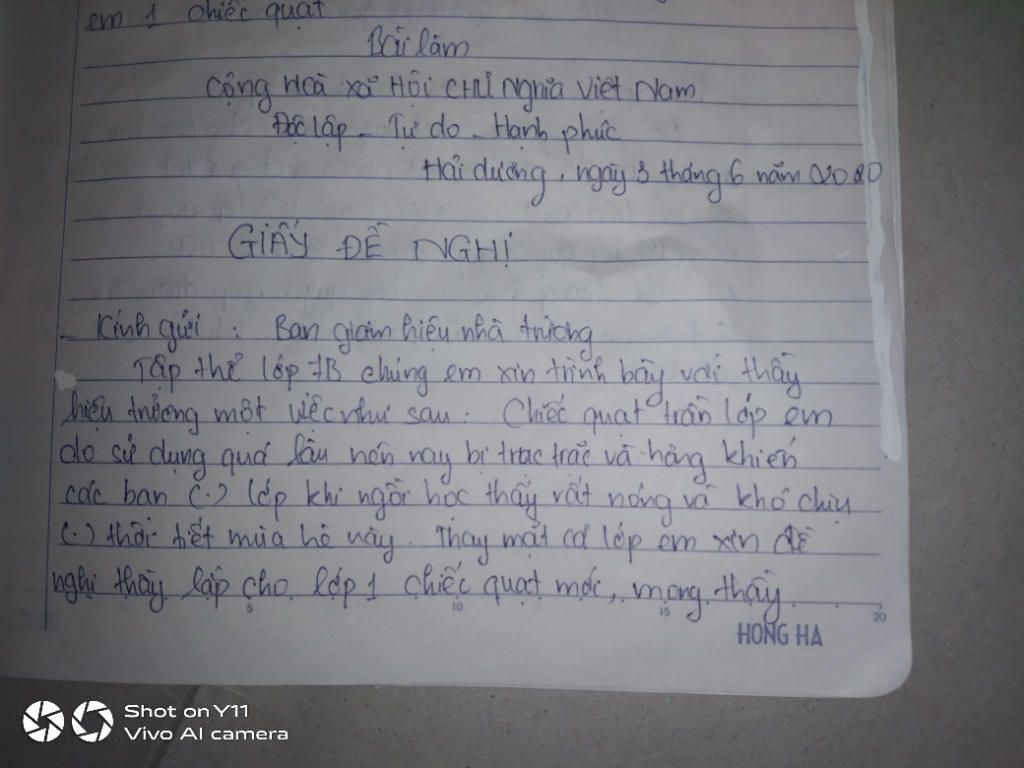 em 1 chiếc quạt
Bài làm
Cộng Hoà xã Hội CHủ Nghĩa Việt Nam
Độc lập - Tự do - Hạnh phúc
Hải dương, ngày 3 tháng 6 năm 2020
GIẤY ĐỀ NGHỊ
- Kính gửi : Ban giám hiệu nhà trường
Tập thể lớp 7B chúng em xin trình bày với thầy
hiệu trưởng một việc như sau : Chiếc quạt trần lớp em
do sử dụng quá lâu nên nay bị trục trặc và hỏng khiến
các bạn (.) lớp khi ngồi học thấy rất nóng và khó chịu
(.) thời tiết mùa hè này. Thay mặt cả lớp em xin đề
nghị thầy lắp cho lớp 1 chiếc quạt mới, mong thầy
5 10 15 20
HONG HA
Shot on Y11
Vivo AI camera